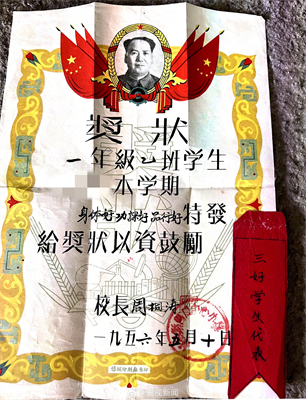 奬狀
一年級乙班学生
本学期
身体好功課好品行好特發
給奬狀以資鼓勵
校長周桐涛
一九五六年五月十日
三好学生代表